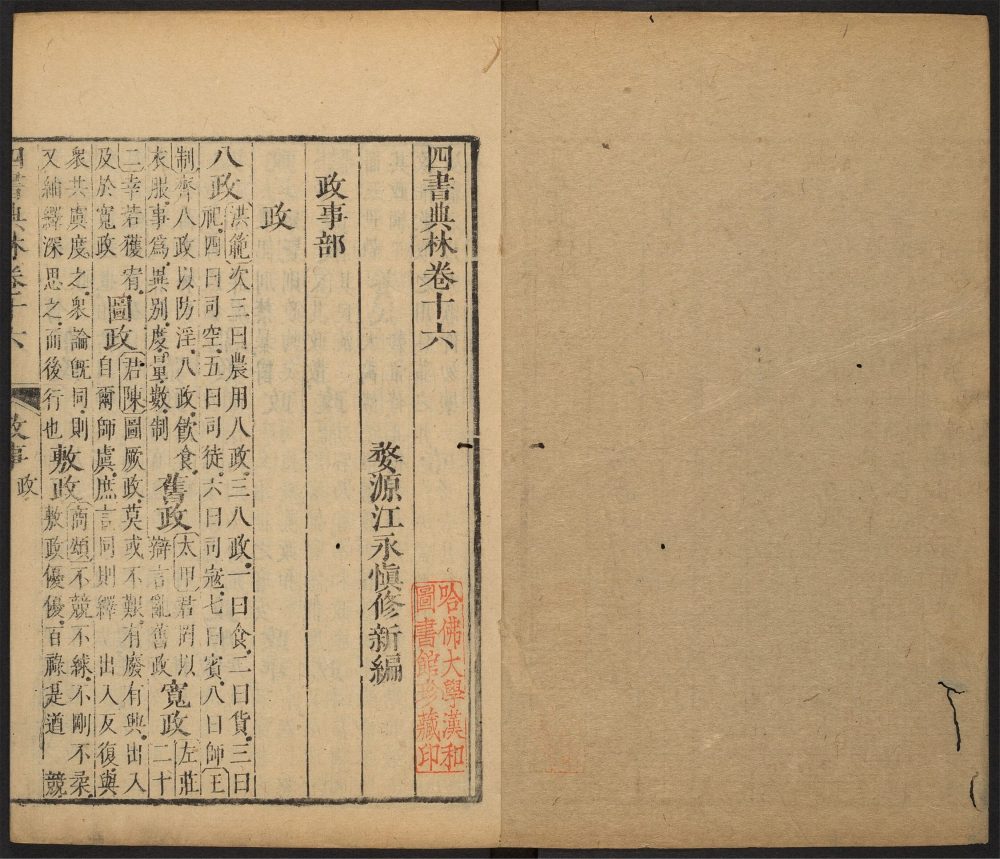 四書典林卷十六
婺源江永慎修新編
哈佛大學漢和
圖書館珍藏印
政事部
政
八政 洪範 次三曰農用八政三八政一曰食二曰貨三曰
祀四曰司空五曰司徒六曰司寇七曰賓八曰師 王
制 齊八政以防淫八政飲食
衣服事為異別度量數制
舊政 太甲 君罔以
辯言亂舊政
寬政 左莊
二十
二 幸若獲宥
及於寬政
圖政 君陳 圖厥政莫或不艱有廢有興出入
自爾師虞庶言同則繹 出入反復與
衆共虞度之衆論既同則
又紬繹深思之而後行也
敷政 商頌 不競不絿不剛不柔
敷政優優百祿是遒 競
四書典林卷十六
政事 政